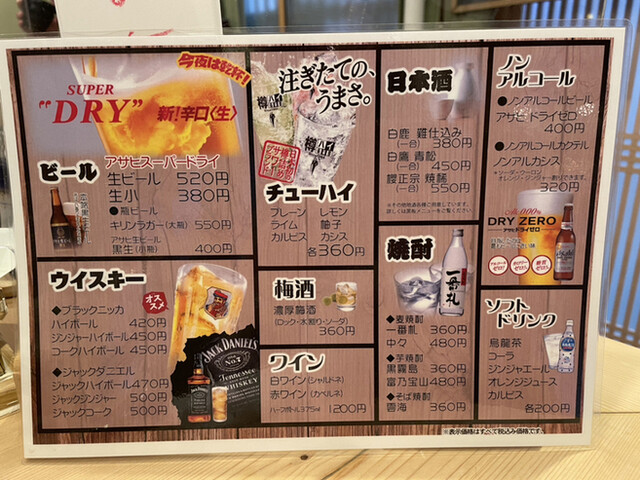 今夜は乾杯!
SUPER
"DRY"
新!辛口〈生〉
ビール
アサヒスーパードライ
生ビール 520円
生小 380円
●瓶ビール
キリンラガー(大瓶) 550円
アサヒ生ビール
黒生(小瓶) 400円
ウイスキー
オススメ
◆ブラックニッカ
ハイボール 420円
ジンジャーハイボール 450円
コークハイボール 450円
◆ジャックダニエル
ジャックハイボール 470円
ジャックジンジャー 500円
ジャックコーク 500円
JACK DANIEL'S
Tennessee
WHISKEY
注ぎたての、
うまさ。
樽ハイ
チューハイ
プレーン レモン
ライム 柚子
カルピス カシス
各360円
梅酒
濃厚梅酒
(ロック・水割り・ソーダ)
360円
ワイン
白ワイン(シャルドネ)
赤ワイン(カベルネ)
ハーフボトル375ml 1200円
日本酒
白鹿 難仕込み
(一合) 380円
白鷹 青松
(一合) 450円
櫻正宗 焼稀
(一合) 550円
焼酎
一番札
◆麦焼酎
一番札 360円
中々 480円
◆芋焼酎
黒霧島 360円
富乃宝山 480円
◆そば焼酎
雲海 360円
ノン
アルコール
●ノンアルコールビール
アサヒドライゼロ
400円
●ノンアルコールカクテル
ノンアルカシス
＊ソーダ・ウーロン
オレンジ・ジンジャー割りができます。
320円
DRY ZERO
アサヒドライゼロ
ソフト
ドリンク
烏龍茶
コーラ
ジンジャエール
オレンジジュース
カルピス
各200円
※表示価格はすべて税込み価格です。